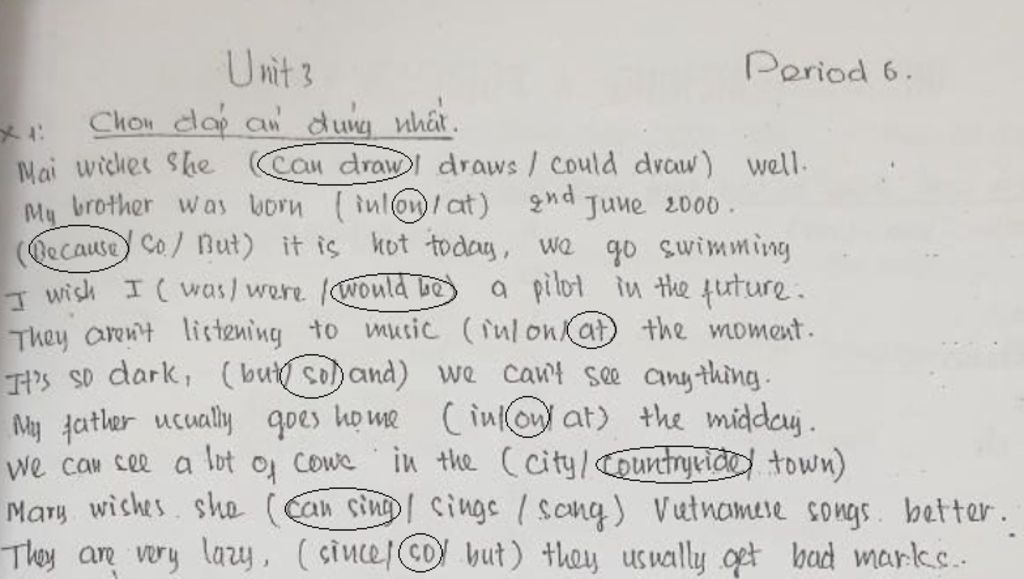 Unit 3 Period 6.
x 1: Chọn đáp án đúng nhất.
Mai wishes she (can draw/ draws / could draw) well.
My brother was born (in/on/at) 2nd June 2000.
(Because/ So/ But) it is hot today, we go swimming
I wish I (was/were/would be) a pilot in the future.
They aren't listening to music (in/on/at) the moment.
It's so dark, (but/so/and) we can't see anything.
My father usually goes home (in/on/at) the midday.
We can see a lot of cows in the (city/countryside/town)
Mary wishes she (can sing/ sings / sang) Vietnamese songs better.
They are very lazy, (since/so/but) they usually get bad marks..